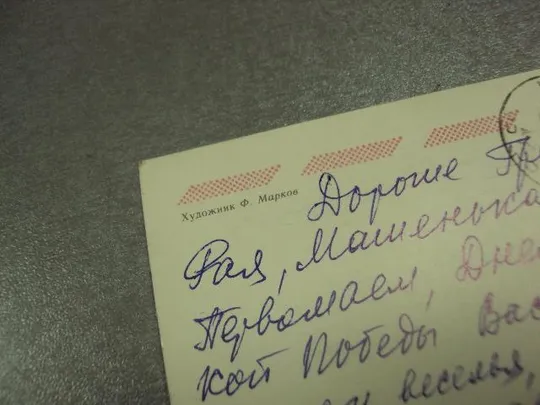 Художник Ф. Марков
Дорогие
Рая, Машенька
Первомаем, Днем
кой Победы Вас
и веселья,